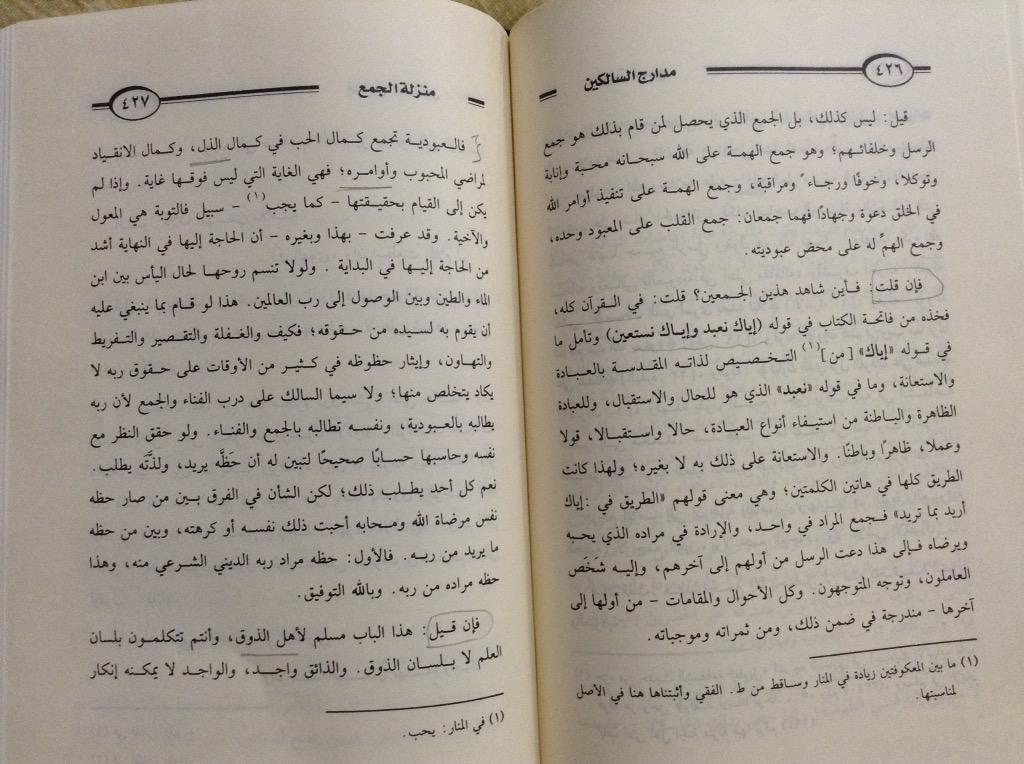 ٤٢٦
مدارج السالكين
قيل: ليس كذلك، بل الجمع الذي يحصل لمن قام بذلك هو جمع
الرسل وخلفائهم؛ وهو جمع الهمة على الله سبحانه محبة وإنابة
وتوكلا، وخوفًا ورجاءً ومراقبة، وجمع الهمة على تنفيذ أوامر الله
في الخلق دعوة وجهادًا فهما جمعان: جمع القلب على المعبود وحده،
وجمع الهمِّ له على محض عبوديته.
فإن قلت: فأين شاهد هذين الجمعين؟ قلت: في القرآن كله،
فخذه من فاتحة الكتاب في قوله (إياك نعبد وإياك نستعين) وتأمل ما
في قوله «إياك» [من](١) التخصيص لذاته المقدسة بالعبادة
والاستعانة، وما في قوله «نعبد» الذي هو للحال والاستقبال، وللعبادة
الظاهرة والباطنة من استيفاء أنواع العبادة، حالا واستقبالا، قولا
وعملا، ظاهرًا وباطنًا. والاستعانة على ذلك به لا بغيره؛ ولهذا كانت
الطريق كلها في هاتين الكلمتين؛ وهي معنى قولهم «الطريق في: إياك
أريد بما تريد» فجمع المراد في واحد، والإرادة في مراده الذي يحبه
ويرضاه فإلى هذا دعت الرسل من أولهم إلى آخرهم، وإليه شَخَص
العاملون، وتوجه المتوجهون. وكل الأحوال والمقامات - من أولها إلى
آخرها - مندرجة في ضمن ذلك، ومن ثمراته وموجباته.
(١) ما بين المعكوفتين زيادة في المنار وساقط من ط. الفقي وأثبتناها هنا في الأصل
لمناسبتها.
منزلة الجمع
٤٢٧
فالعبودية تجمع كمال الحب في كمال الذل، وكمال الانقياد
لمراضي المحبوب وأوامره؛ فهي الغاية التي ليس فوقها غاية. وإذا لم
يكن إلى القيام بحقيقتها - كما يجب(١) - سبيل فالتوبة هي المعول
والآخية. وقد عرفت - بهذا وبغيره - أن الحاجة إليها في النهاية أشد
من الحاجة إليها في البداية. ولولا تنسم روحها لحال اليأس بين ابن
الماء والطين وبين الوصول إلى رب العالمين. هذا لو قام بما ينبغي عليه
أن يقوم به لسيده من حقوقه؛ فكيف والغفلة والتقصير والتفريط
والتهاون، وإيثار حظوظه في كثير من الأوقات على حقوق ربه لا
يكاد يتخلص منها؛ ولا سيما السالك على درب الفناء والجمع لأن ربه
يطالبه بالعبودية، ونفسه تطالبه بالجمع والفناء. ولو حقق النظر مع
نفسه وحاسبها حسابًا صحيحًا لتبين له أن حَظَّه يريد، ولذَّتَه يطلب.
نعم كل أحد يطلب ذلك؛ لكن الشأن في الفرق بين من صار حظه
نفس مرضاة الله ومحابه أحبت ذلك نفسه أو كرهته، وبين من حظه
ما يريد من ربه. فالأول: حظه مراد ربه الديني الشرعي منه، وهذا
حظه مراده من ربه. وبالله التوفيق.
فإن قيل: هذا الباب مسلم لأهل الذوق، وأنتم تتكلمون بلسان
العلم لا بلسان الذوق. والذائق واجد، والواجد لا يمكنه إنكار
(١) في المنار: يحب.